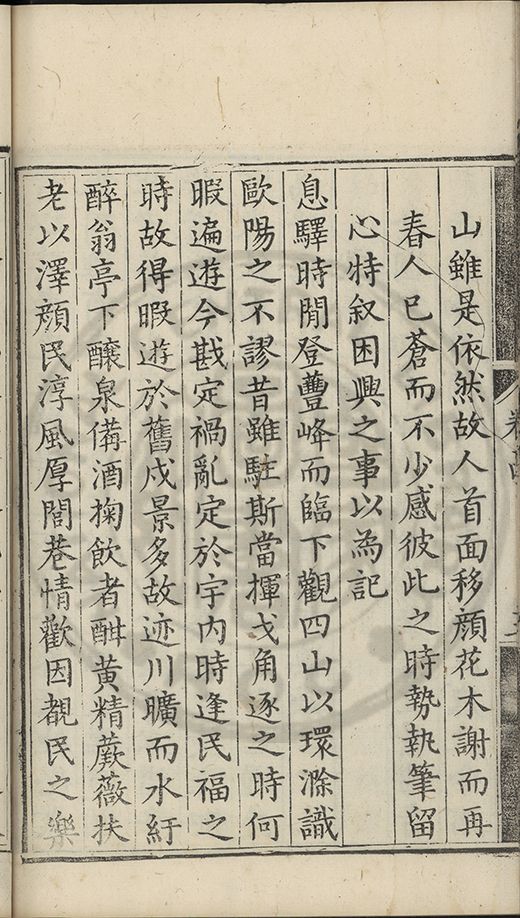 山雖是依然故人首面移顔花木謝而再
春人已蒼而不少感彼此之時勢執筆留
心特叙困興之事以為記
息驛時閒登豐峰而臨下觀四山以環滁識
歐陽之不謬昔雖駐斯當揮戈角逐之時何
暇遍遊今戡定禍亂定於宇内時逢民福之
時故得暇遊於舊戍景多故迹川曠而水紆
醉翁亭下釀泉備酒掬飲者酣黄精蕨薇扶
老以澤顔民淳風厚閭巷情歡因覩民之樂